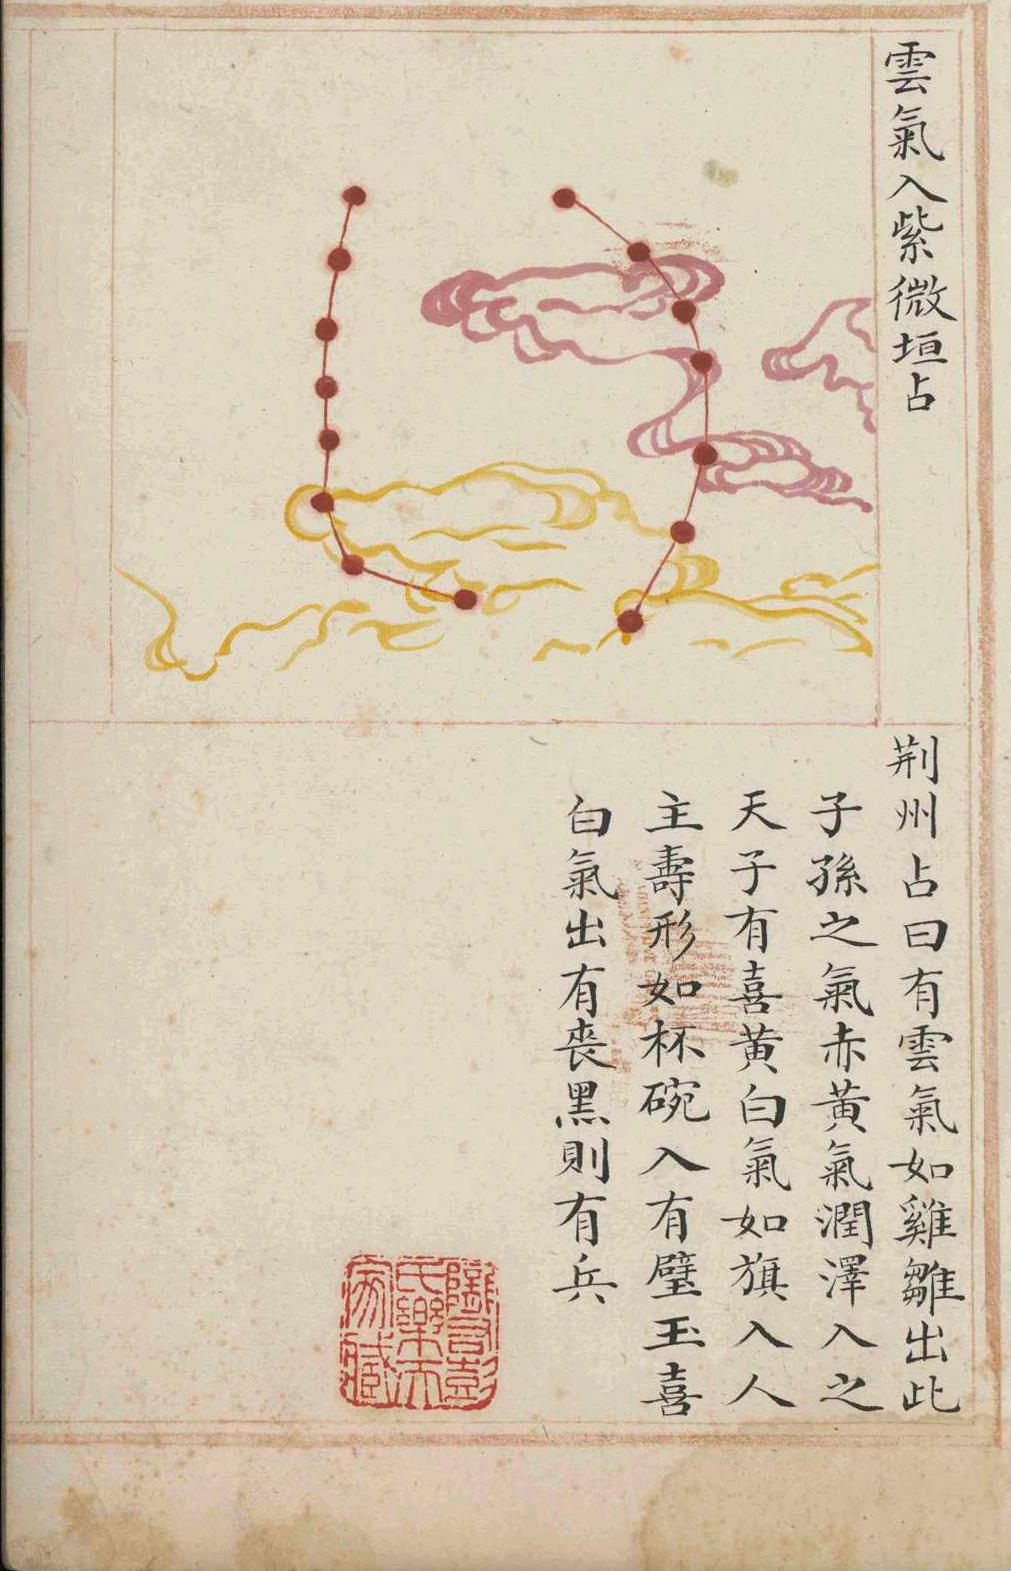 雲氣入紫微垣占
荆州占曰有雲氣如雞雛出此
子孫之氣赤黃氣潤澤入之
天子有喜黃白氣如旗入人
主壽形如杯碗入有璧玉喜
白氣出有喪黑則有兵